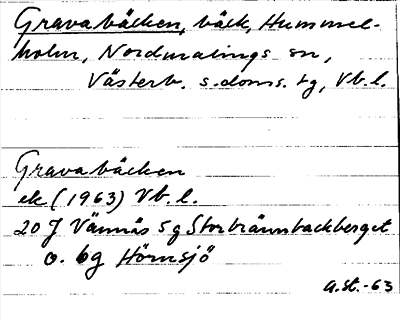 Gravabäcken, bäck, Hummel-
holm, Nordmalings sn,
Västerb. s. doms. tg, Vb. l.
Gravabäcken
ek (1963) Vb. l.
20 J Vännäs 5 g Storbrännbackberget
o. 6g Hörnsjö
a.st.-63